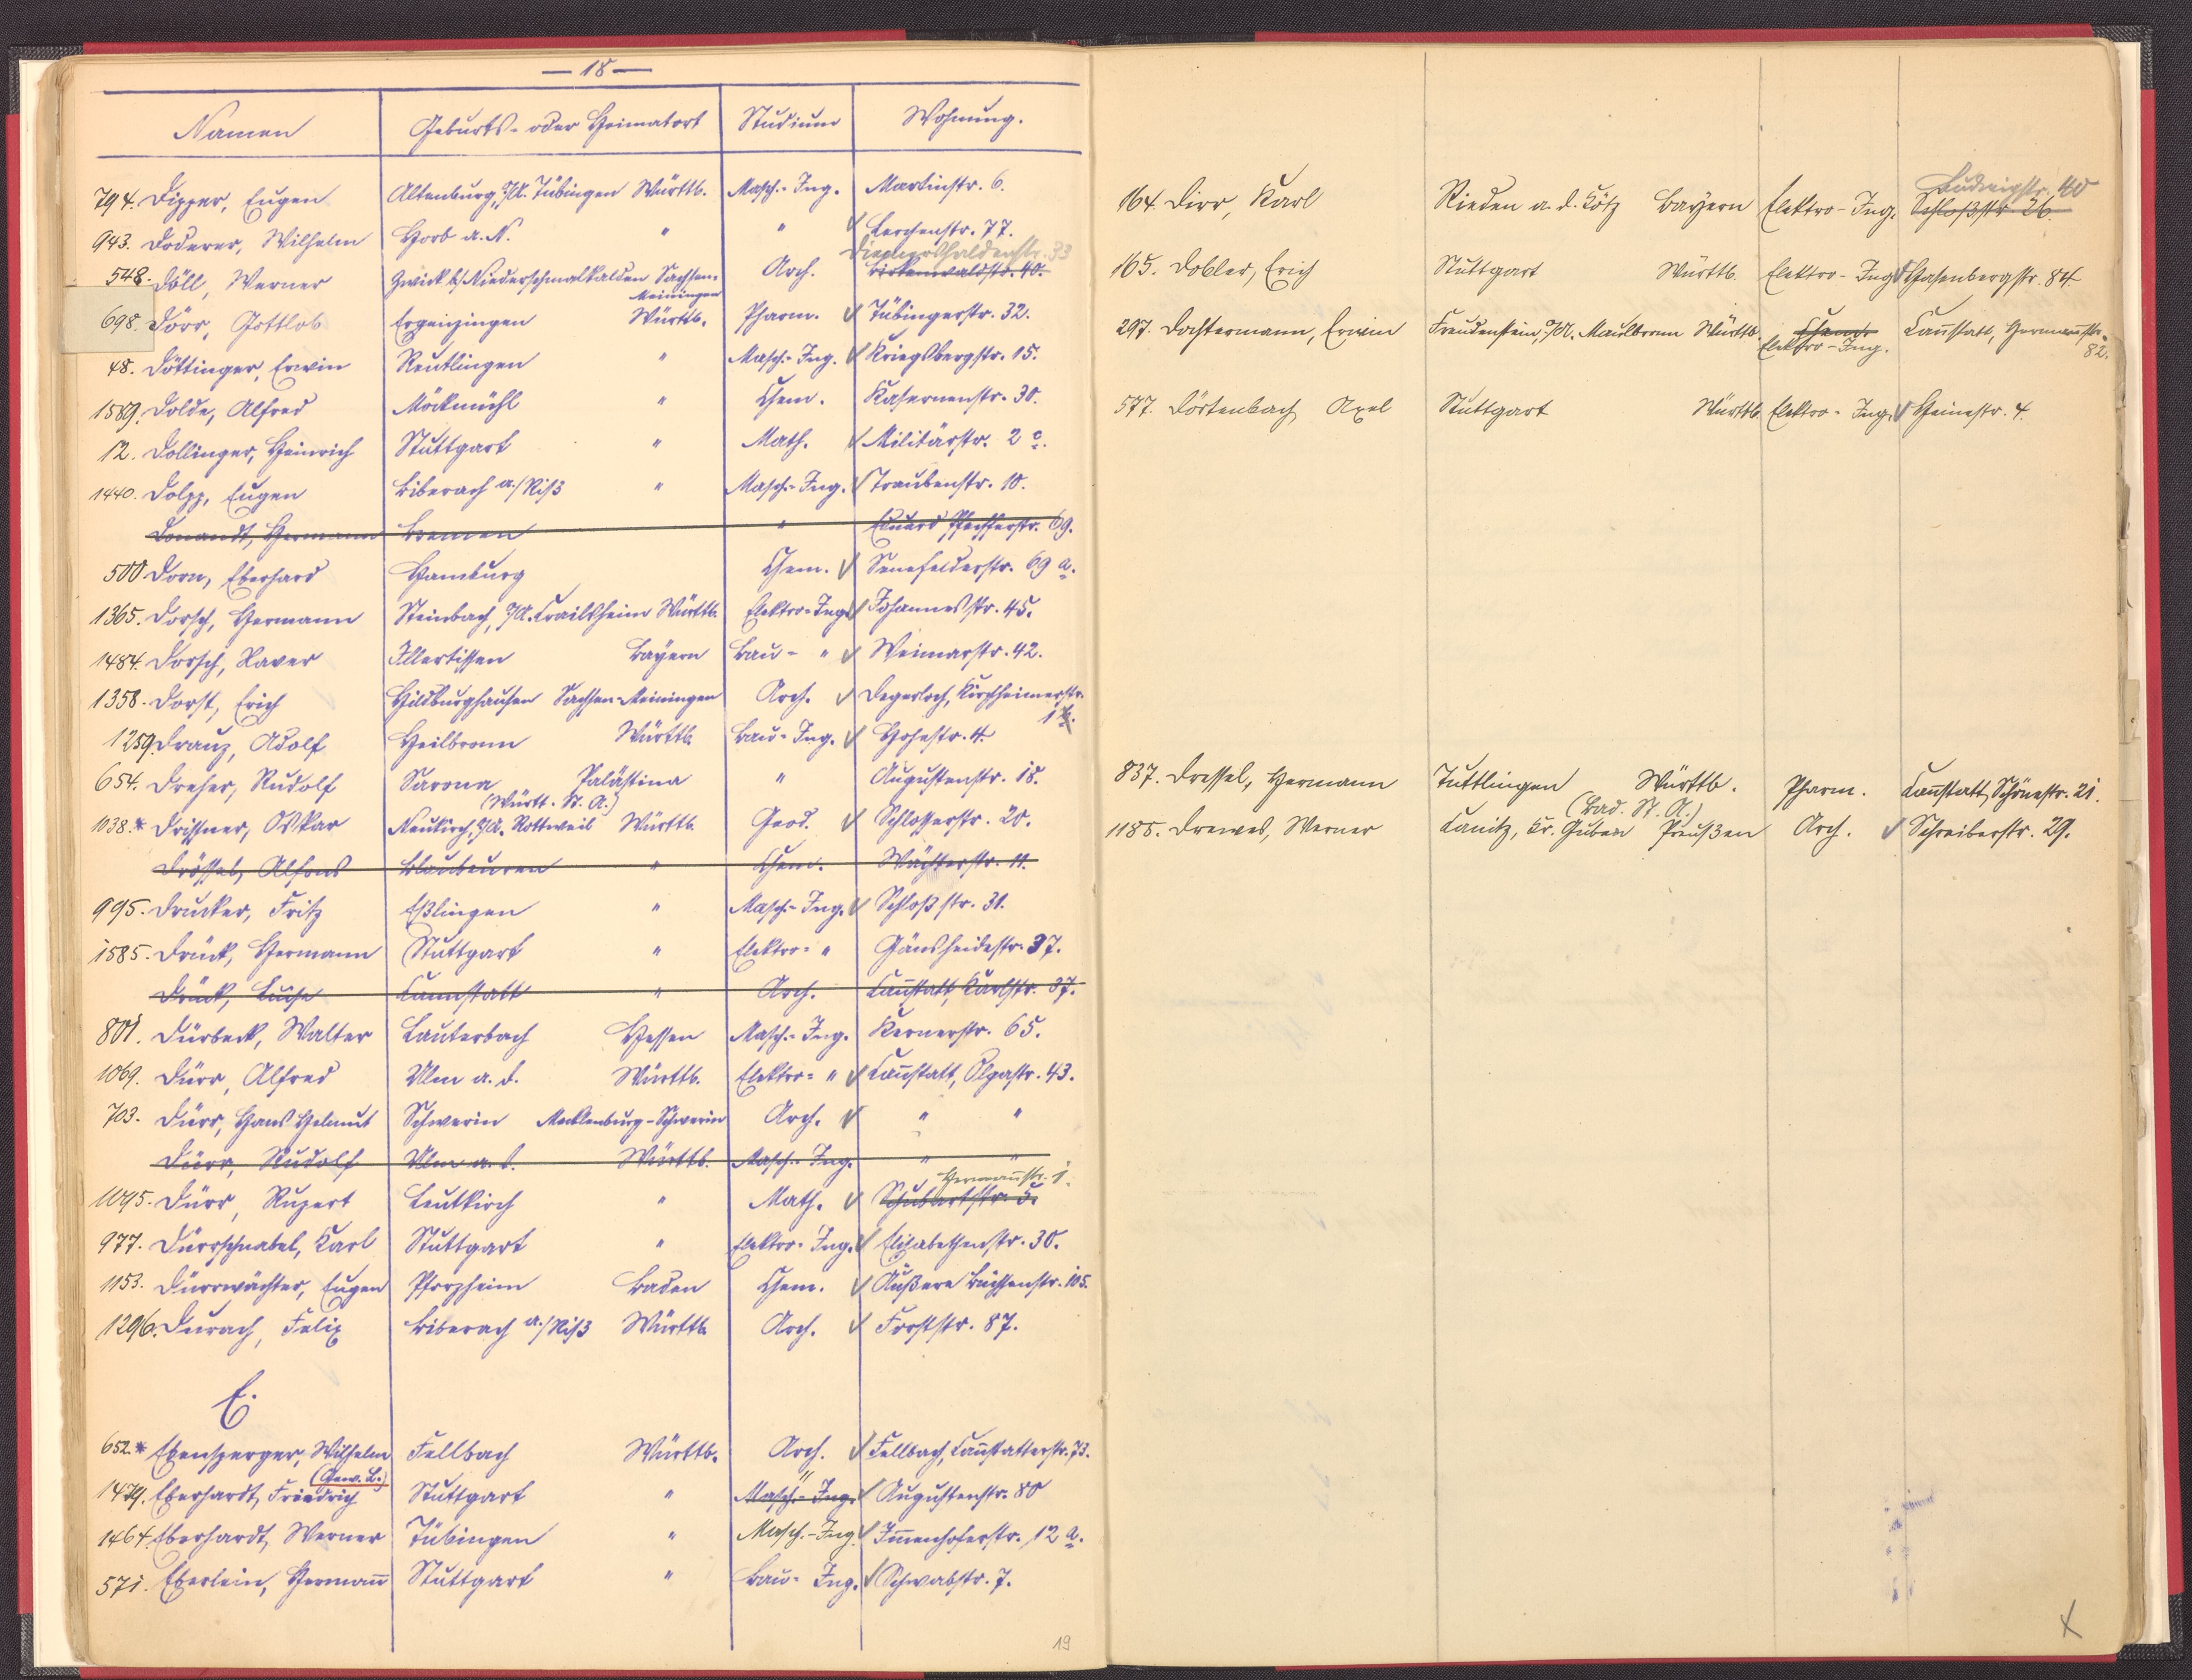 — 18 —
Namen Geburts- oder Heimatort Studium Wohnung.
794. Dipper, Eugen Altenburg, O/A. Tübingen Württb. Masch.-Ing. Martinstr. 6.
943. Doderer, Wilhelm Horb a. N. " " Lerchenstr. 77.
Diemershaldenstr. 33
548. Döll, Werner Zwick b/ Niederschmalkalden Sachsen- Arch. Birkenwaldstr. 40.
Meiningen
698. Dörr, Gottlob Ergenzingen Württb. Pharm. Tübingerstr. 32.
48. Döttinger, Erwin Reutlingen " Masch.-Ing. Kriegsbergstr. 15.
1589. Dolde, Alfred Möckmühl " Chem. Kasernenstr. 30.
12. Dollinger, Heinrich Stuttgart " Math. Militärstr. 2 c.
1440. Dolpp, Eugen Biberach a./Riß " Masch.-Ing. Traubenstr. 10.
Donandt, Hermann Bremen " Eduard Pfeifferstr. 69.
500 Dorn, Eberhard Hamburg Chem. Senefelderstr. 69 a.
1365. Dorsch, Hermann Steinbach, O/A. Crailsheim Württb. Elektro-Ing. Johannesstr. 45.
1484. Dorsch, Xaver Illertissen Bayern Bau- " Weimarstr. 42.
1358. Dorst, Erich Hildburghausen Sachsen-Meiningen Arch. Degerloch, Kirchheimerstr.
1259. Drauz, Adolf Heilbronn Württb. Bau-Ing. Hohestr. 4.
654. Dreher, Rudolf Sarona Palästina " Augustenstr. 18.
(Württ. St. A.)
1038.* Drissner, Oskar Neukirch, O/A. Rottweil Württb. Geod. Schlosserstr. 20.
Drössel, Alfons Blaubeuren " Chem. Wächterstr. 11.
995. Drucker, Fritz Eßlingen " Masch.-Ing. Schloßstr. 31.
1585. Drück, Hermann Stuttgart " Elektro- " Gänsheidestr. 37.
Drück, Luise Cannstatt " Arch. Cannstatt, Karlstr. 37.
801. Dürbeck, Walter Lauterbach Hessen Masch.-Ing. Kernerstr. 65.
1069. Dürr, Alfred Ulm a. D. Württb. Elektro- " Cannstatt, Olgastr. 43.
703. Dürr, Hans Helmut Schwerin Mecklenburg-Schwerin Arch. " "
Dürr, Rudolf Ulm a. D. Württb. Masch.-Ing. " "
Hermannstr. 1.
1095. Dürr, Rupert Leutkirch " Math. Schubartstr. 5.
977. Dürrschnabel, Karl Stuttgart " Elektro-Ing. Elisabethenstr. 30.
1153. Dürrwächter, Eugen Pforzheim Baden Chem. Äußere Büchsenstr. 105.
1296. Durach, Felix Biberach a./Riß Württb. Arch. Forststr. 87.
E.
652.* Ebensperger, Wilhelm Fellbach Württb. Arch. Fellbach, Cannstatterstr. 73.
(Gew. L.)
1479. Eberhardt, Friedrich Stuttgart " " Masch.-Ing. Augustenstr. 80
1464. Eberhardt, Werner Tübingen " Masch.-Ing. Immenhoferstr. 12 a.
571. Eberlein, Hermann Stuttgart " Bau-Ing. Schwabstr. 7.
19
Ludwigstr. 40
164. Dirr, Karl Rieden a. d. Kötz Bayern Elektro-Ing. Schloßstr. 26.
165. Dobler, Erich Stuttgart Württb. Elektro-Ing. Hasenbergstr. 84
297. Dochtermann, Erwin Freudenstein, O/A. Maulbronn Württb. Chem. Cannstatt, Hermannstr.
Elektro-Ing. 82.
577. Dörtenbach, Axel Stuttgart Württb. Elektro-Ing. Heinestr. 4.
837. Dressel, Hermann Tuttlingen Württb. Pharm. Cannstatt, Schönestr. 21.
(Bad. St. A.)
1185. Drewes, Werner Canitz, Kr. Guben Preußen Arch. Schreiberstr. 29.